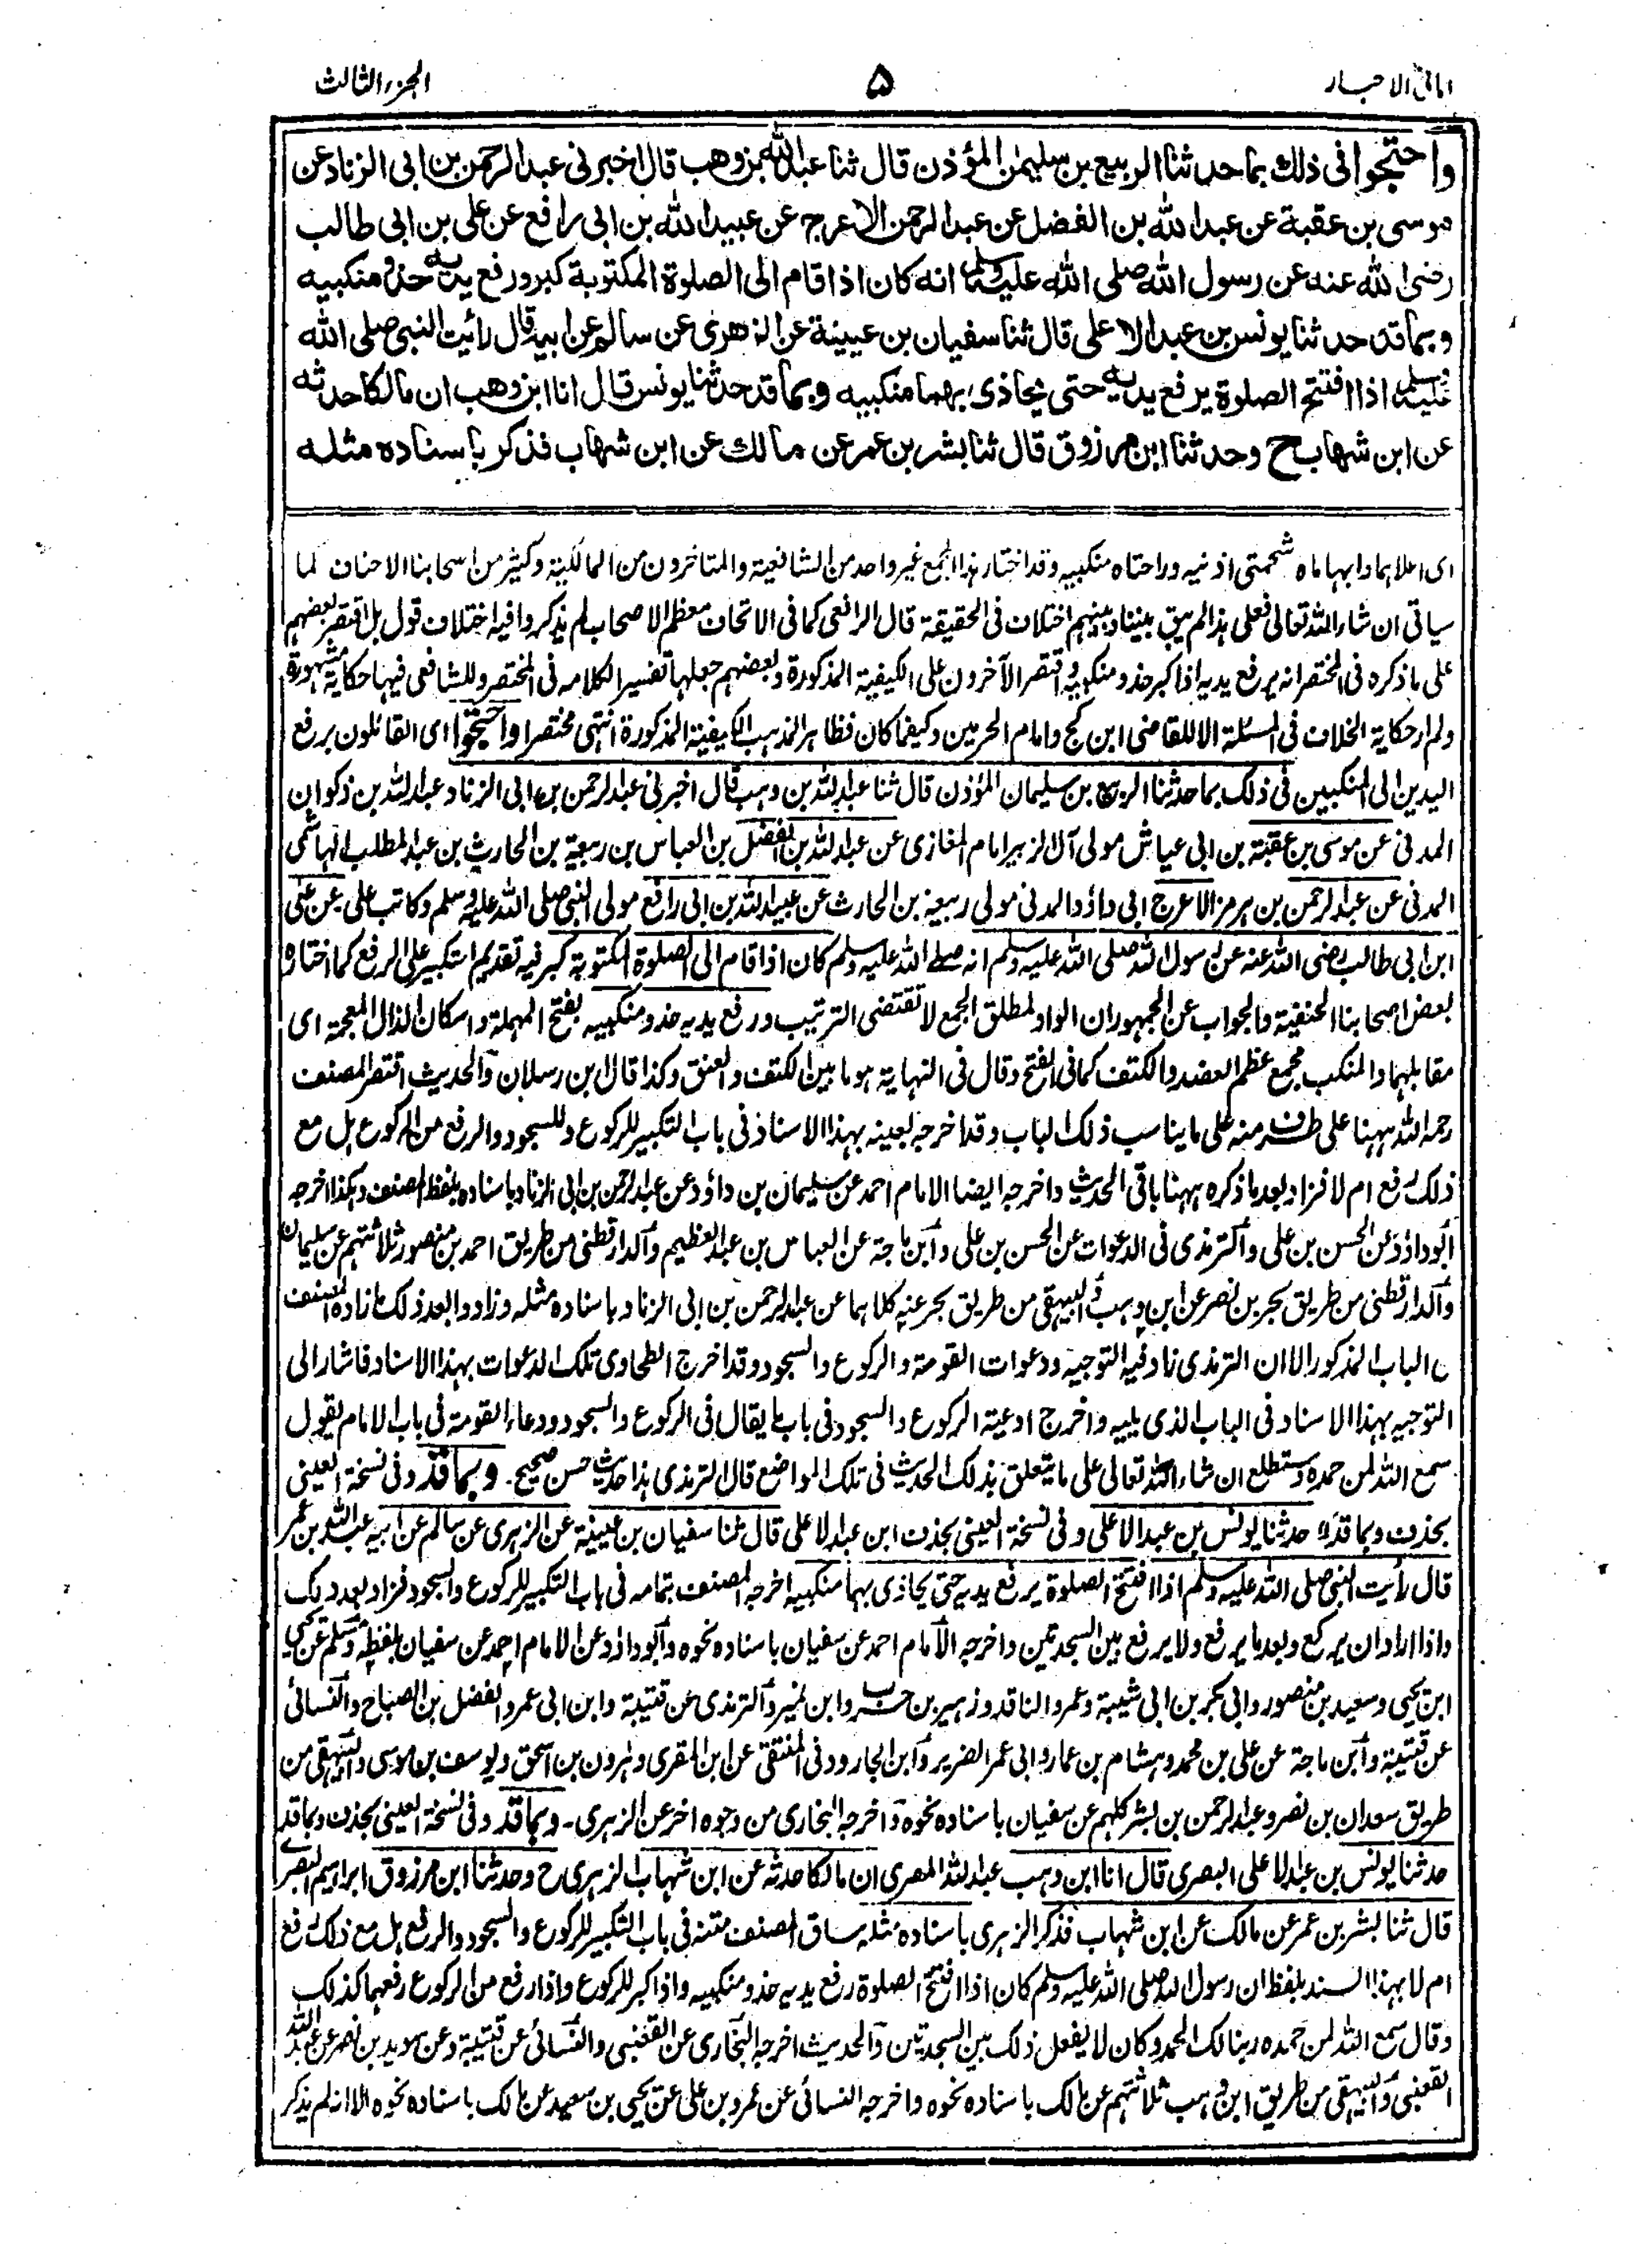 امانی الاحبار ۵ الجزء الثالث
واحتجوا فی ذلك بما حدثنا الربیع بن سلیمٰن المؤذن قال ثنا عبدالله بن وهب قال اخبرنی عبدالرحمن بن ابی الزناد عن
موسی بن عقبة عن عبدالله بن الفضل عن عبدالرحمن الاعرج عن عبیدالله بن ابی رافع عن علی بن ابی طالب
رضی الله عنه عن رسول الله صلی الله علیه وسلم انه کان اذا قام الی الصلوة المکتوبة کبر ورفع یدیه حذو منکبیه
وبما قد حدثنا یونس بن عبدالاعلی قال ثنا سفیان بن عیینة عن الزهری عن سالم عن ابیه قال رأیت النبی صلی الله
علیه وسلم اذا افتتح الصلوة یرفع یدیه حتی یحاذی بهما منکبیه وبما قد حدثنا یونس قال انا ابن وهب ان مالکا حدثه
عن ابن شهاب ح وحدثنا ابن مرزوق قال ثنا بشر بن عمر عن مالك عن ابن شهاب فذکر باسناده مثله
ای اعلاہما وابہاماہ شحمتی اذنیہ وراحتاہ منکبیہ وقد اختار ہذا الجمع غیر واحد من الشافعیة والمتاخرون من المالکیة وکثیر من اصحابنا الاحناف لما
سیاتی ان شاء اللہ تعالی فعلی ہذا لم یبق بیننا وبینہم اختلاف فی الحقیقة قال الرافعی کما فی الاتحاف معظم الاصحاب لم یذکروا فیہ اختلاف قول بل اقتصر بعضہم
علی ما ذکرہ فی المختصر انہ یرفع یدیہ اذا کبر حذو منکبیہ واقتصر الآخرون علی الکیفیة المذکورة وبعضہم جعلہا تفسیرا لکلامہ فی المختصر وللشافعی فیہا حکایة مشہورة
ولم ار حکایة الخلاف فی المسئلة الا للقاضی ابن کج وامام الحرمین وکیفما کان فظاہر المذہب الکیفیة المذکورة انتہی مختصرا واحتجوا ای القائلون برفع
الیدین الی المنکبین فی ذلک بما حدثنا الربیع بن سلیمان المؤذن قال ثنا عبداللہ بن وہب قال اخبرنی عبدالرحمن بن ابی الزناد عبداللہ بن ذکوان
المدنی عن موسی بن عقبة بن ابی عیاش مولی آل الزبیر امام المغازی عن عبداللہ بن الفضل بن العباس بن ربیعة بن الحارث بن عبدالمطلب الہاشمی
المدنی عن عبدالرحمن بن ہرمز الاعرج ابی داؤد المدنی مولی ربیعة بن الحارث عن عبیداللہ بن ابی رافع مولی النبی صلی اللہ علیہ وسلم وکاتب علی عن علی
ابن ابی طالب رضی اللہ عنہ عن رسول اللہ صلی اللہ علیہ وسلم انہ صلی اللہ علیہ وسلم کان اذا قام الی الصلوة المکتوبة کبر فیہ تقدیم التکبیر علی الرفع کما اختارہ
بعض اصحابنا الحنفیة والجواب عن الجمہور ان الواو لمطلق الجمع لا تقتضی الترتیب ورفع یدیہ حذو منکبیہ بفتح المہملة واسکان الذال المعجمة ای
مقابلہما والمنکب مجمع عظم العضد والکتف کما فی الفتح وقال فی النہایة ہو ما بین الکتف والعنق وکذا قال ابن رسلان والحدیث اقتصر المصنف
رحمہ اللہ ہہنا علی طرف منہ علی ما یناسب ذلک الباب وقد اخرجہ بعینہ بہذا الاسناد فی باب التکبیر للرکوع وللسجود والرفع من الرکوع ہل مع
ذلک رفع ام لا فزاد بعد ما ذکرہ ہہنا باقی الحدیث واخرجہ ایضا الامام احمد عن سلیمان بن داؤد عن عبدالرحمن بن ابی الزناد باسنادہ بلفظ المصنف وہکذا اخرجہ
ابوداؤد عن الحسن بن علی والترمذی فی الدعوات عن الحسن بن علی وابن ماجة عن العباس بن عبدالعظیم والدارقطنی من طریق احمد بن منصور ثلاثتہم عن سلیمان
والدارقطنی من طریق بحر بن نصر عن ابن وہب والبیہقی من طریق بحر عنہ کلاہما عن عبدالرحمن بن ابی الزناد باسنادہ مثلہ وزادوا بعد ذلک ما زادہ المصنف
فی الباب المذکور الا ان الترمذی زاد فیہ التوجیہ ودعوات القومة والرکوع والسجود وقد اخرج الطحاوی تلک الدعوات بہذا الاسناد فاشار الی
التوجیہ بہذا الاسناد فی الباب الذی یلیہ واخرج ادعیة الرکوع والسجود فی باب ما یقال فی الرکوع والسجود ودعاء القومة فی باب الامام یقول
سمع اللہ لمن حمدہ وستطلع ان شاء اللہ تعالی علی ما یتعلق بذلک الحدیث فی تلک المواضع قال الترمذی ہذا حدیث حسن صحیح۔ وبما قد وفی نسخة العینی
بحذف وبما قد حدثنا یونس بن عبدالاعلی وفی نسخة العینی بحذف ابن عبدالاعلی قال ثنا سفیان بن عیینة عن الزہری عن سالم عن ابیہ عبداللہ بن عمر
قال رأیت النبی صلی اللہ علیہ وسلم اذا افتتح الصلوة یرفع یدیہ حتی یحاذی بہما منکبیہ اخرجہ المصنف بتمامہ فی باب التکبیر للرکوع والسجود فزاد بعد ذلک
واذا اراد ان یرکع وبعد ما یرفع ولا یرفع بین السجدتین واخرجہ الامام احمد عن سفیان باسنادہ نحوہ وابوداؤد عن الامام احمد عن سفیان بلفظہ ومسلم عن یحیی
ابن یحیی وسعید بن منصور وابی بکر بن ابی شیبة وعمرو الناقد وزہیر بن حرب وابن نمیر والترمذی عن قتیبة وابن ابی عمر والفضل بن الصباح والنسائی
عن قتیبة وابن ماجة عن علی بن محمد وہشام بن عمار وابی عمر الضریر وابن الجارود فی المنتقی عن ابن المقری وہٰرون بن اسحٰق ویوسف بن موسی والبیہقی من
طریق سعدان بن نصر وعبدالرحمن بن بشر کلہم عن سفیان باسنادہ نحوہ واخرجہ البخاری من وجوہ اخر عن الزہری۔ وبما قد وفی نسخة العینی بحذف وبما قد
حدثنا یونس بن عبدالاعلی البصری قال انا ابن وہب عبداللہ المصری ان مالکا حدثہ عن ابن شہاب الزہری ح وحدثنا ابن مرزوق ابراہیم البصری
قال ثنا بشر بن عمر عن مالک عن ابن شہاب فذکر الزہری باسنادہ مثلہ ساق المصنف متنہ فی باب التکبیر للرکوع والسجود والرفع ہل مع ذلک رفع
ام لا بہذا السند بلفظ ان رسول اللہ صلی اللہ علیہ وسلم کان اذا افتتح الصلوة رفع یدیہ حذو منکبیہ واذا کبر للرکوع واذا رفع من الرکوع رفعہما کذلک
وقال سمع اللہ لمن حمدہ ربنا لک الحمد وکان لا یفعل ذلک بین السجدتین والحدیث اخرجہ البخاری عن القعنبی والنسائی عن قتیبة وعن سوید بن نصر عن عبداللہ
القعنبی والبیہقی من طریق ابن وہب ثلاثتہم عن مالک باسنادہ نحوہ واخرجہ النسائی عن عمرو بن علی عن یحیی بن سعید عن مالک باسنادہ نحوہ الا انہ لم یذکر